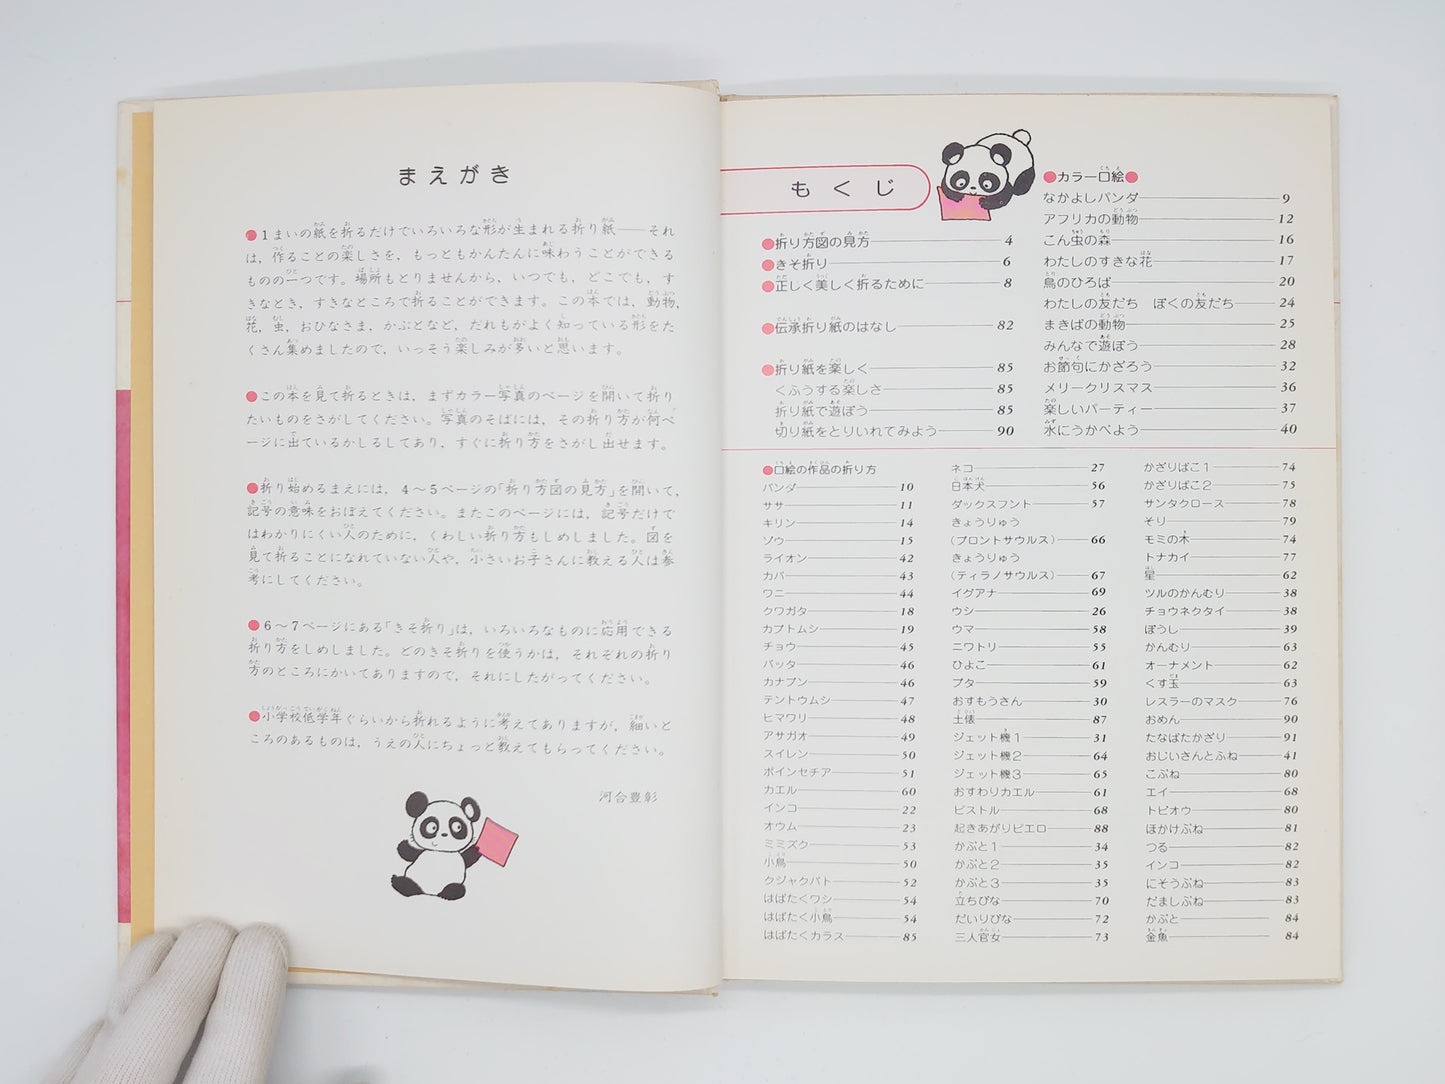 まえがき
●1まいの紙を折るだけでいろいろな形が生まれる折り紙――それ
は，作ることの楽しさを，もっともかんたんに味わうことができる
ものの一つです。場所もとりませんから，いつでも，どこでも，す
きなとき，すきなところで折ることができます。この本では，動物，
花，虫，おひなさま，かぶとなど，だれもがよく知っている形をた
くさん集めましたので，いっそう楽しみが多いと思います。
●この本を見て折るときは，まずカラー写真のページを開いて折り
たいものをさがしてください。写真のそばには，その折り方が何ペ
ージに出ているかしるしてあり，すぐに折り方をさがし出せます。
●折り始めるまえには，4～5ページの「折り方図の見方」を開いて，
記号の意味をおぼえてください。またこのページには，記号だけで
はわかりにくい人のために，くわしい折り方もしめしました。図を
見て折ることになれていない人や，小さいお子さんに教える人は参
考にしてください。
●6～7ページにある「きそ折り」は，いろいろなものに応用できる
折り方をしめしました。どのきそ折りを使うかは，それぞれの折り
方のところにかいてありますので，それにしたがってください。
●小学校低学年ぐらいから折れるように考えてありますが，細いと
ころのあるものは，うえの人にちょっと教えてもらってください。
河合豊彰
もくじ
●折り方図の見方 4
●きそ折り 6
●正しく美しく折るために 8
●伝承折り紙のはなし 82
●折り紙を楽しく 85
くふうする楽しさ 85
折り紙で遊ぼう 85
切り紙をとりいれてみよう 90
●カラー口絵●
なかよしパンダ 9
アフリカの動物 12
こん虫の森 16
わたしのすきな花 17
鳥のひろば 20
わたしの友だち ぼくの友だち 24
まきばの動物 25
みんなで遊ぼう 28
お節句にかざろう 32
メリークリスマス 36
楽しいパーティー 37
水にうかべよう 40
●口絵の作品の折り方
パンダ 10
ササ 11
キリン 14
ゾウ 15
ライオン 42
カバ 43
ワニ 44
クワガタ 18
カブトムシ 19
チョウ 45
バッタ 46
カナブン 46
テントウムシ 47
ヒマワリ 48
アサガオ 49
スイレン 50
ポインセチア 51
カエル 60
インコ 22
オウム 23
ミミズク 53
小鳥 50
クジャクバト 52
はばたくワシ 54
はばたく小鳥 54
はばたくカラス 85
ネコ 27
日本犬 56
ダックスフント 57
きょうりゅう
(ブロントサウルス) 66
きょうりゅう
(ティラノサウルス) 67
イグアナ 69
ウシ 26
ウマ 58
ニワトリ 55
ひよこ 61
ブタ 59
おすもうさん 30
土俵 87
ジェット機1 31
ジェット機2 64
ジェット機3 65
おすわりカエル 61
ピストル 68
起きあがりピエロ 88
かぶと1 34
かぶと2 35
かぶと3 35
立ちびな 70
だいりびな 72
三人官女 73
かざりばこ1 74
かざりばこ2 75
サンタクロース 78
そり 79
モミの木 74
トナカイ 77
星 62
ツルのかんむり 38
チョウネクタイ 38
ぼうし 39
かんむり 63
オーナメント 62
くす玉 63
レスラーのマスク 76
おめん 90
たなばたかざり 91
おじいさんとふね 41
こぶね 80
エイ 68
トビオウ 80
ほかけぶね 81
つる 82
インコ 82
にそうぶね 83
だましぶね 83
かぶと 84
金魚 84